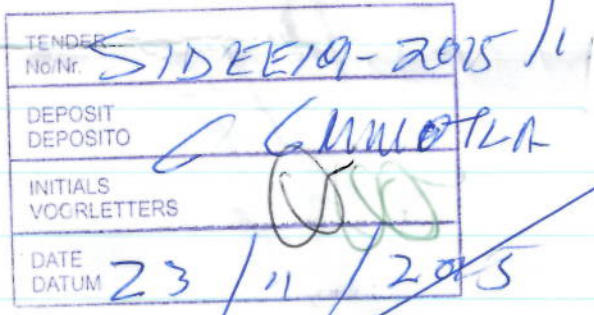 TENDER
No/Nr. SIDEE19-2015/1
DEPOSIT
DEPOSITO
INITIALS
VOORLETTERS
DATE
DATUM 23/11/2015